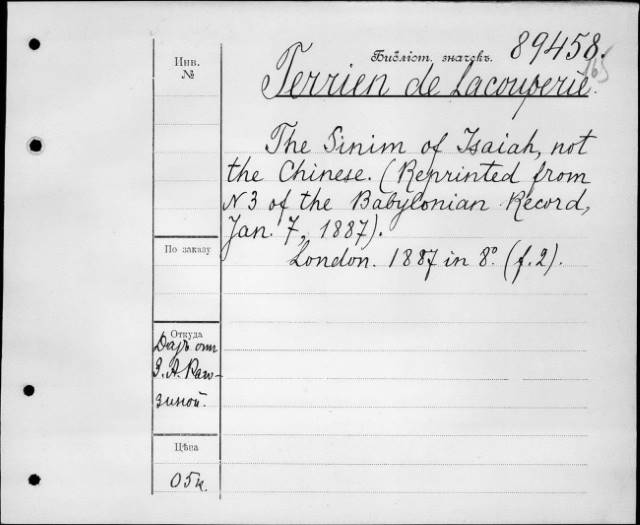 Инв.
№
Библіот. значекъ. 89458.
Terrien de Lacouperie.
The Sinim of Isaiah, not
the Chinese. (Reprinted from
N3 of the Babylonian Record,
Jan. 7, 1887).
London. 1887 in 8º. (f. 2).
По заказу
Откуда
Даръ отъ
Цѣна
05к.